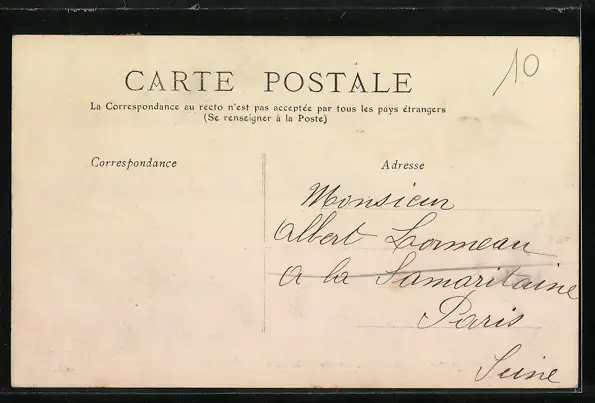 10
CARTE POSTALE
La Correspondance au recto n'est pas acceptée par tous les pays étrangers
(Se renseigner à la Poste)
Correspondance
Adresse
Monsieur
Albert Lormeau
A la Samaritaine
Paris
Seine